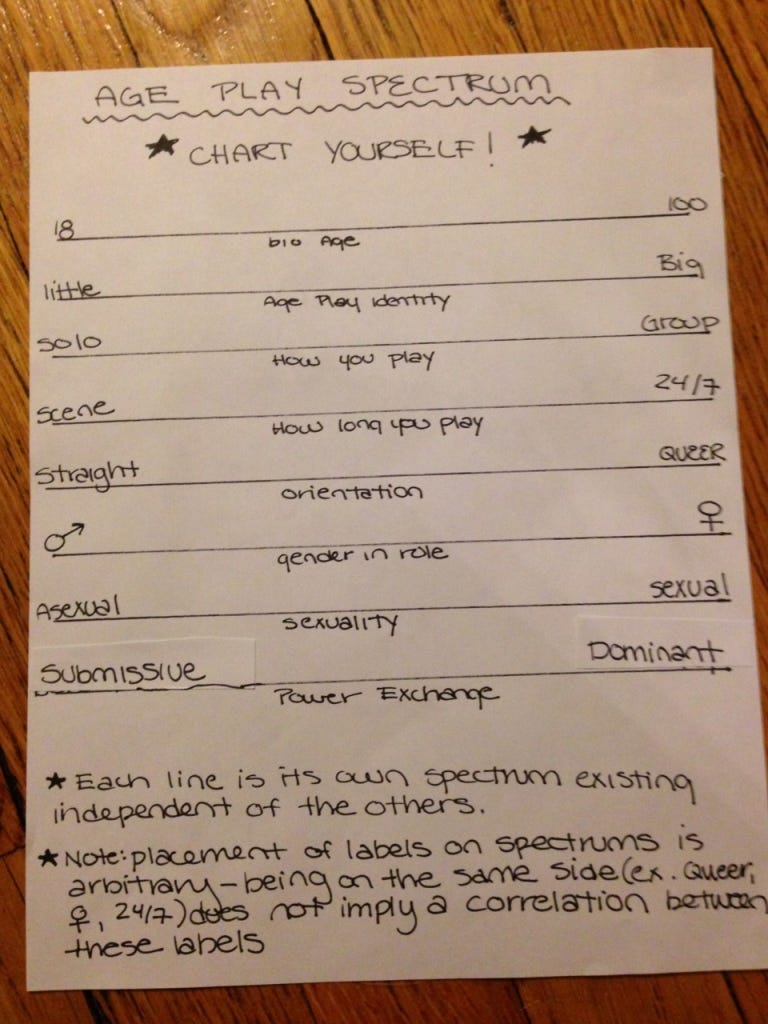 AGE PLAY SPECTRUM
★ CHART YOURSELF! ★
18 100
bio Age
little Big
Age Play identity
solo Group
How you play
scene 24/7
How long you play
straight QUEER
orientation
♂ ♀
gender in role
Asexual sexual
sexuality
Submissive Dominant
Power Exchange
★ Each line is its own spectrum existing
independent of the others.
★ Note: placement of labels on spectrums is
arbitrary - being on the same side (ex. Queer,
♀, 24/7) does not imply a correlation between
these labels